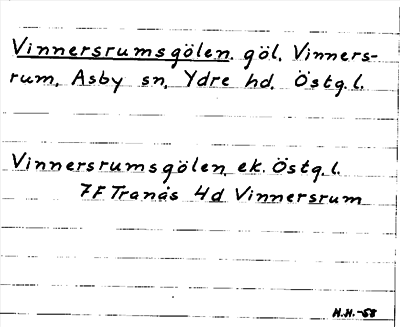 Vinnersrumsgölen. göl. Vinners-
rum, Asby sn, Ydre hd. Östg.l.
Vinnersrumsgölen, ek. Östg.l.
7F Tranås 4d Vinnersrum
H.H.-58